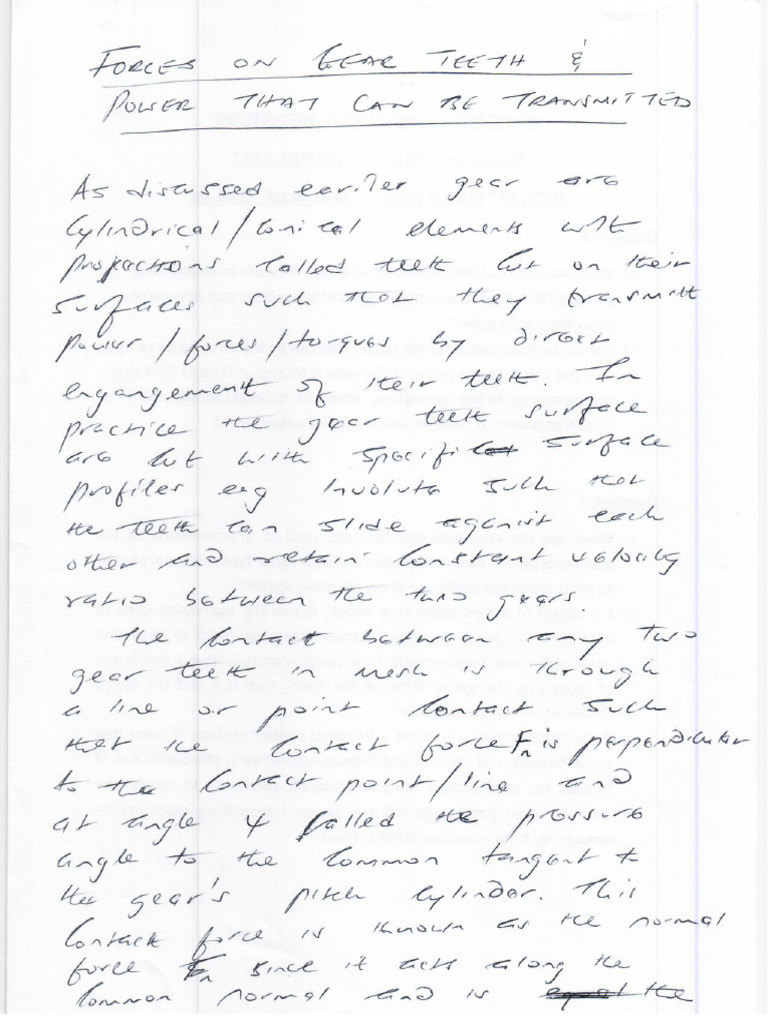 FORCES ON GEAR TEETH &
POWER THAT CAN BE TRANSMITTED
As discussed earlier gear are
Cylindrical/Conical elements with
projections called teeth cut on their
surfaces such that they transmitt
power/forces/torques by direct
engangement of their teeth. In
practice the gear teeth surface
are cut with specific surface
profiles eg involute such that
the teeth can slide against each
other and retain constant velocity
ratio between the two gears.
The contact between any two
gear teeth in mesh is through
a line or point contact such
that the contact force Fn is perpendicular
to the contact point/line and
at angle ψ called the pressure
angle to the common tangent to
the gear's pitch cylinder. This
contact force is known as the normal
force Fn since it acts along the
common normal and is equal the